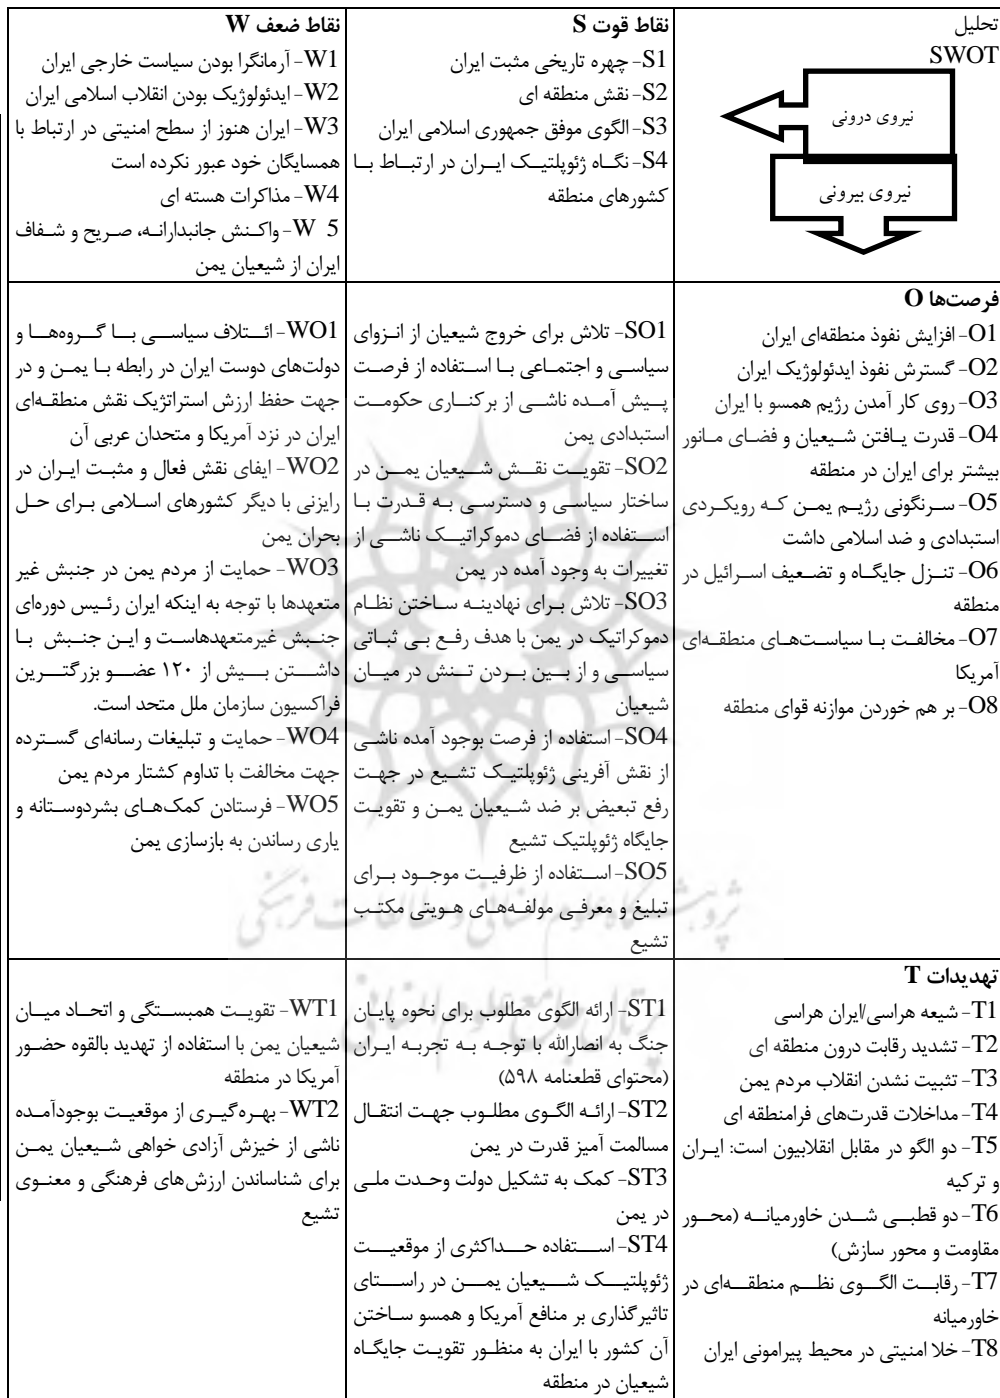 تحلیل
SWOT
نیروی درونی
نیروی بیرونی
نقاط قوت S
S1- چهره تاریخی مثبت ایران
S2- نقش منطقه ای
S3- الگوی موفق جمهوری اسلامی ایران
S4- نگاه ژئوپلتیک ایران در ارتباط با
کشورهای منطقه
نقاط ضعف W
W1- آرمانگرا بودن سیاست خارجی ایران
W2- ایدئولوژیک بودن انقلاب اسلامی ایران
W3- ایران هنوز از سطح امنیتی در ارتباط با
همسایگان خود عبور نکرده است
W4- مذاکرات هسته ای
W 5- واکنش جانبدارانه، صریح و شفاف
ایران از شیعیان یمن
فرصت‌ها O
O1- افزایش نفوذ منطقه‌ای ایران
O2- گسترش نفوذ ایدئولوژیک ایران
O3- روی کار آمدن رژیم همسو با ایران
O4- قدرت یافتن شیعیان و فضای مانور
بیشتر برای ایران در منطقه
O5- سرنگونی رژیم یمن که رویکردی
استبدادی و ضد اسلامی داشت
O6- تنزل جایگاه و تضعیف اسرائیل در
منطقه
O7- مخالفت با سیاست‌های منطقه‌ای
آمریکا
O8- بر هم خوردن موازنه قوای منطقه
SO1- تلاش برای خروج شیعیان از انزوای
سیاسی و اجتماعی با استفاده از فرصت
پیش آمده ناشی از برکناری حکومت
استبدادی یمن
SO2- تقویت نقش شیعیان یمن در
ساختار سیاسی و دسترسی به قدرت با
استفاده از فضای دموکراتیک ناشی از
تغییرات به وجود آمده در یمن
SO3- تلاش برای نهادینه ساختن نظام
دموکراتیک در یمن با هدف رفع بی ثباتی
سیاسی و از بین بردن تنش در میان
شیعیان
SO4- استفاده از فرصت بوجود آمده ناشی
از نقش آفرینی ژئوپلتیک تشیع در جهت
رفع تبعیض بر ضد شیعیان یمن و تقویت
جایگاه ژئوپلتیک تشیع
SO5- استفاده از ظرفیت موجود برای
تبلیغ و معرفی مولفه‌های هویتی مکتب
تشیع
WO1- ائتلاف سیاسی با گروه‌ها و
دولت‌های دوست ایران در رابطه با یمن و در
جهت حفظ ارزش استراتژیک نقش منطقه‌ای
ایران در نزد آمریکا و متحدان عربی آن
WO2- ایفای نقش فعال و مثبت ایران در
رایزنی با دیگر کشورهای اسلامی برای حل
بحران یمن
WO3- حمایت از مردم یمن در جنبش غیر
متعهدها با توجه به اینکه ایران رئیس دوره‌ای
جنبش غیرمتعهدهاست و این جنبش با
داشتن بیش از ۱۲۰ عضو بزرگترین
فراکسیون سازمان ملل متحد است.
WO4- حمایت و تبلیغات رسانه‌ای گسترده
جهت مخالفت با تداوم کشتار مردم یمن
WO5- فرستادن کمک‌های بشردوستانه و
یاری رساندن به بازسازی یمن
تهدیدات T
T1- شیعه هراسی/ایران هراسی
T2- تشدید رقابت درون منطقه ای
T3- تثبیت نشدن انقلاب مردم یمن
T4- مداخلات قدرت‌های فرامنطقه ای
T5- دو الگو در مقابل انقلابیون است: ایران
و ترکیه
T6- دو قطبی شدن خاورمیانه (محور
مقاومت و محور سازش)
T7- رقابت الگوی نظم منطقه‌ای در
خاورمیانه
T8- خلا امنیتی در محیط پیرامونی ایران
ST1- ارائه الگوی مطلوب برای نحوه پایان
جنگ به انصارالله با توجه به تجربه ایران
(محتوای قطعنامه ۵۹۸)
ST2- ارائه الگوی مطلوب جهت انتقال
مسالمت آمیز قدرت در یمن
ST3- کمک به تشکیل دولت وحدت ملی
در یمن
ST4- استفاده حداکثری از موقعیت
ژئوپلتیک شیعیان یمن در راستای
تاثیرگذاری بر منافع آمریکا و همسو ساختن
آن کشور با ایران به منظور تقویت جایگاه
شیعیان در منطقه
WT1- تقویت همبستگی و اتحاد میان
شیعیان یمن با استفاده از تهدید بالقوه حضور
آمریکا در منطقه
WT2- بهره‌گیری از موقعیت بوجودآمده
ناشی از خیزش آزادی خواهی شیعیان یمن
برای شناساندن ارزش‌های فرهنگی و معنوی
تشیع
پژوهشگاه علوم انسانی و مطالعات فرهنگی
پرتال جامع علوم انسانی